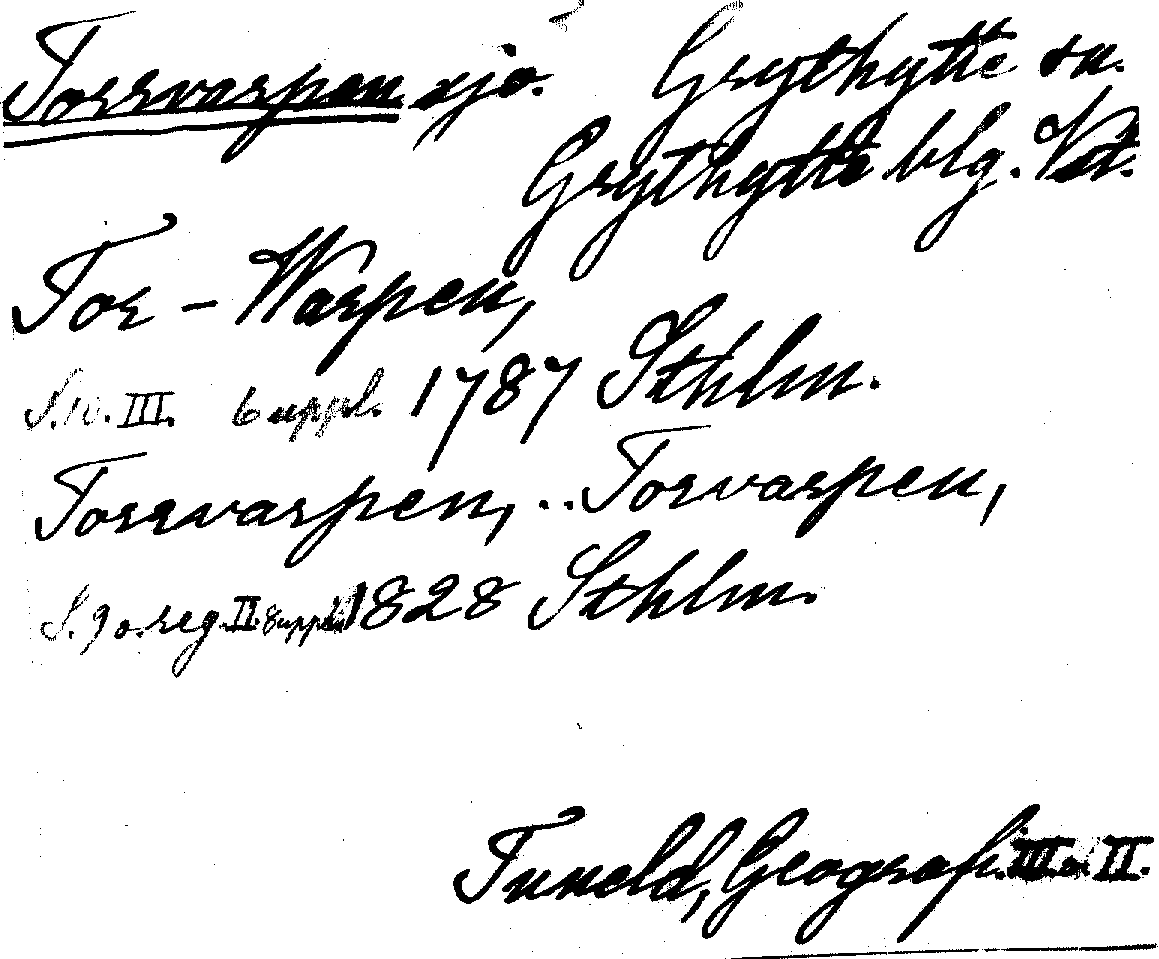 Torrvarpen sjö. Grythytte sn.
Grythytte blg. Vstm.
Tor - Warpen,
S. 10. III. 6 uppl. 1787 Sthlm.
Torrvarpen, .. Torvarpen,
S. 9 o. reg. II. 8 uppl. 1828 Sthlm.
Tuneld, Geografi. III o. II.